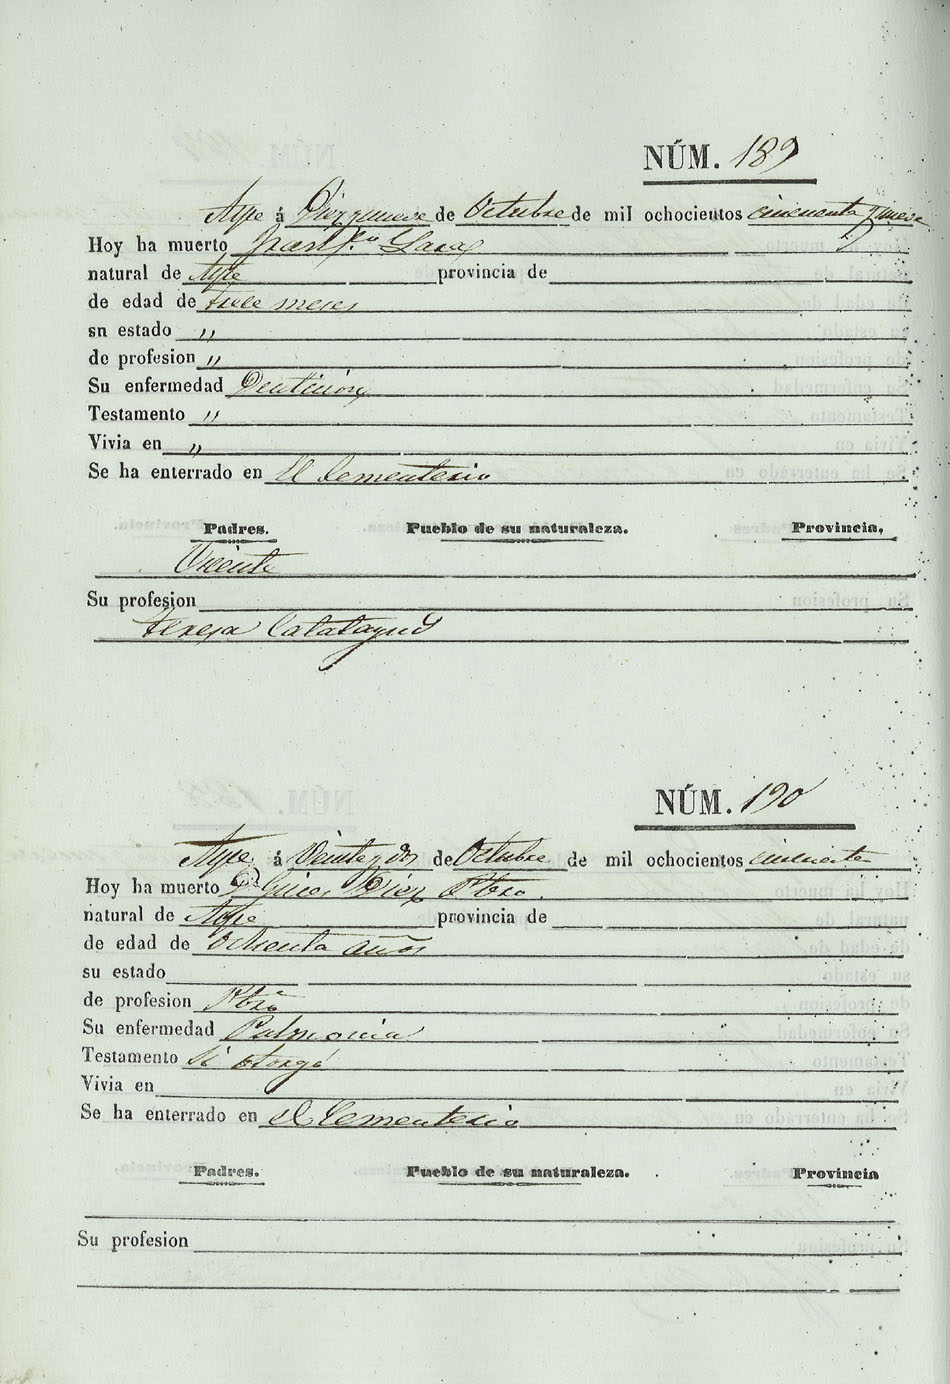 NÚM. 189
Aspe á Diez y nueve de Octubre de mil ochocientos cincuenta y nueve
Hoy ha muerto
natural de Aspe provincia de
de edad de trece meses
sn estado "
de profesion "
Su enfermedad Denticion
Testamento "
Vivia en "
Se ha enterrado en El Cementerio
Padres. Pueblo de su naturaleza. Provincia.
Vicente
Su profesion
Teresa Calatayud
NÚM. 190
Aspe á Veinte y dos de Octubre de mil ochocientos cincuenta
Hoy ha muerto Dn Pbro.
natural de Aspe provincia de
de edad de Ochenta años
su estado
de profesion Pbro
Su enfermedad Pulmonia
Testamento Si otorgó
Vivia en
Se ha enterrado en el Cementerio
Padres. Pueblo de su naturaleza. Provincia
Su profesion